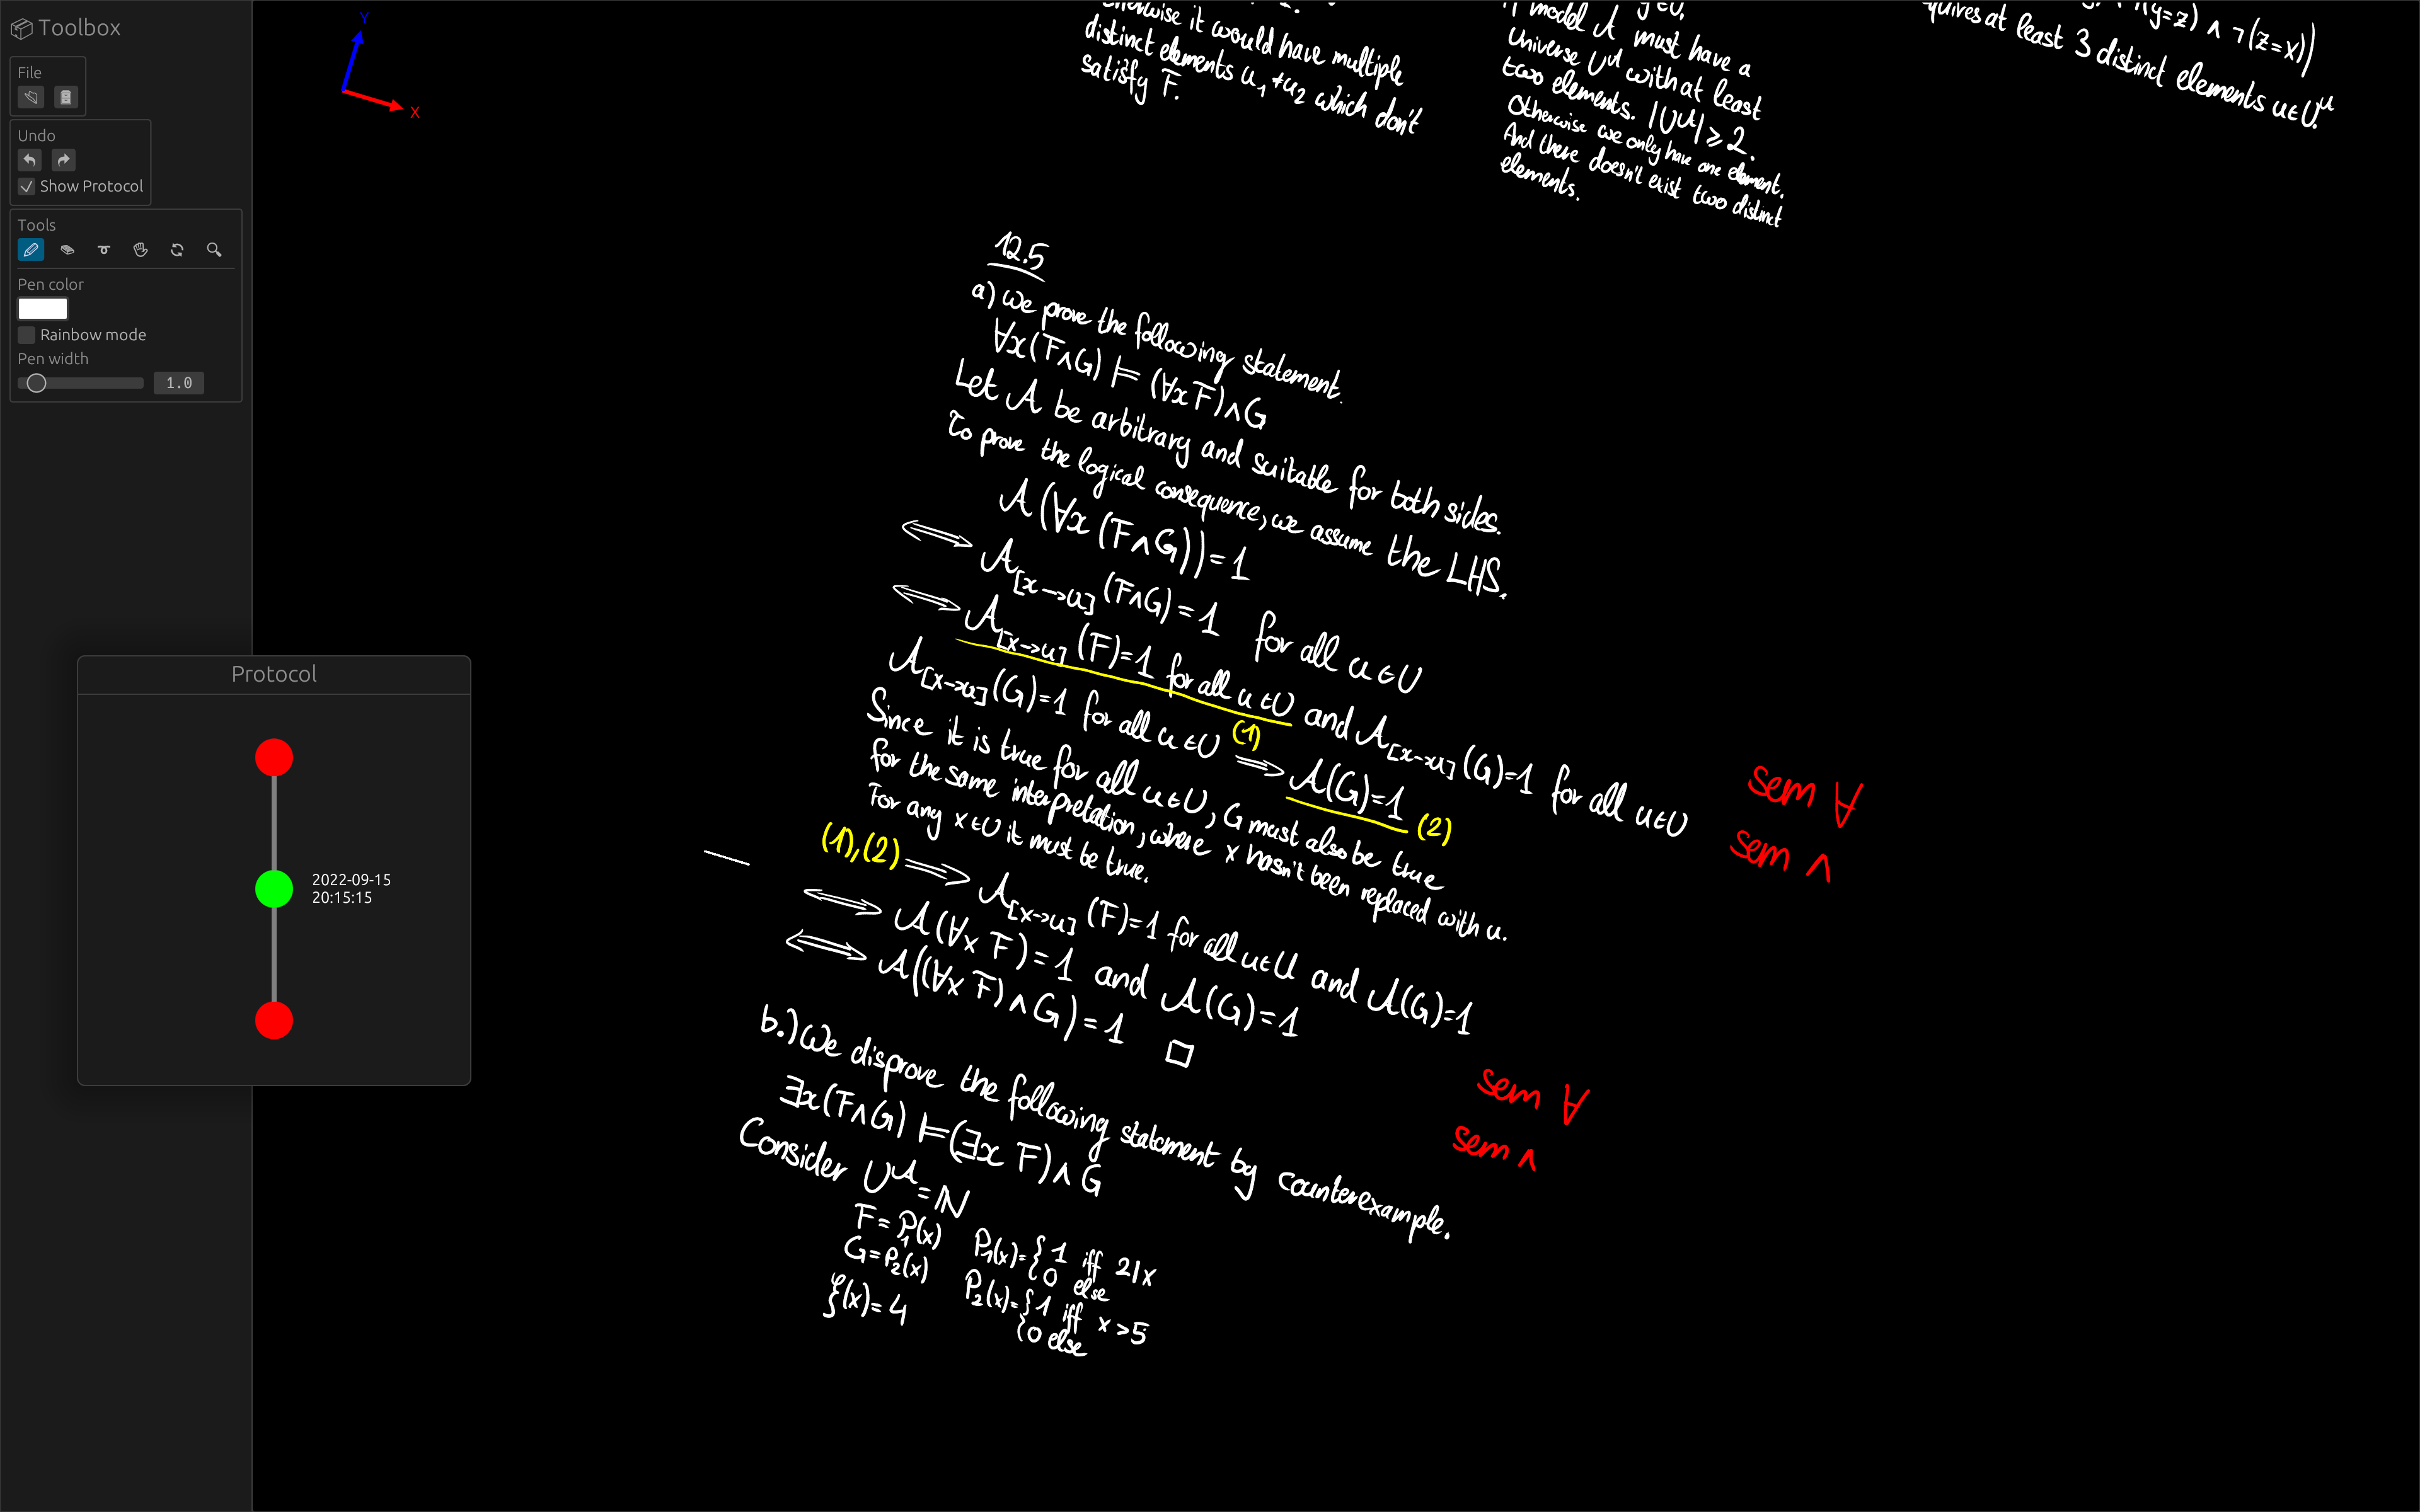 Toolbox
File
Undo
Show Protocol
Tools
Pen color
Rainbow mode
Pen width
1.0
Protocol
2022-09-15
20:15:15
Y
X
it would have multiple
distinct elements u₁ ≠ u₂ which don't
satisfy F.
model A must have a
Universe U^A with at least
two elements. |U^A| ≥ 2.
Otherwise we only have one element.
And there doesn't exist two distinct
elements.
(y=z) ∧ ¬(z=x))
at least 3 distinct elements u∈U^A.
12.5
a) We prove the following statement.
∀x(F∧G) ⊨ (∀x F)∧G
Let A be arbitrary and suitable for both sides.
To prove the logical consequence, we assume the LHS.
A(∀x (F∧G))=1
⟺ A[x→u] (F∧G)=1 for all u∈U
sem ∀
⟺ A[x→u] (F)=1 for all u∈U and A[x→u] (G)=1 for all u∈U
sem ∧
(1)
A[x→u] (G)=1 for all u∈U ⟹ A(G)=1
(2)
Since it is true for all u∈U, G must also be true
for the same interpretation, where x hasn't been replaced with u.
For any x∈U it must be true.
(1),(2) ⟹ A[x→u] (F)=1 for all u∈U and A(G)=1
⟺ A(∀x F)=1 and A(G)=1
sem ∀
⟺ A((∀x F)∧G)=1 □
sem ∧
b.) We disprove the following statement by counterexample.
∃x(F∧G) ⊨ (∃x F)∧G
Consider U^A=ℕ
F=P₁(x) P₁(x)={ 1 iff 2|x
0 else
G=P₂(x) P₂(x)={ 1 iff x>5
0 else
ξ(x)=4